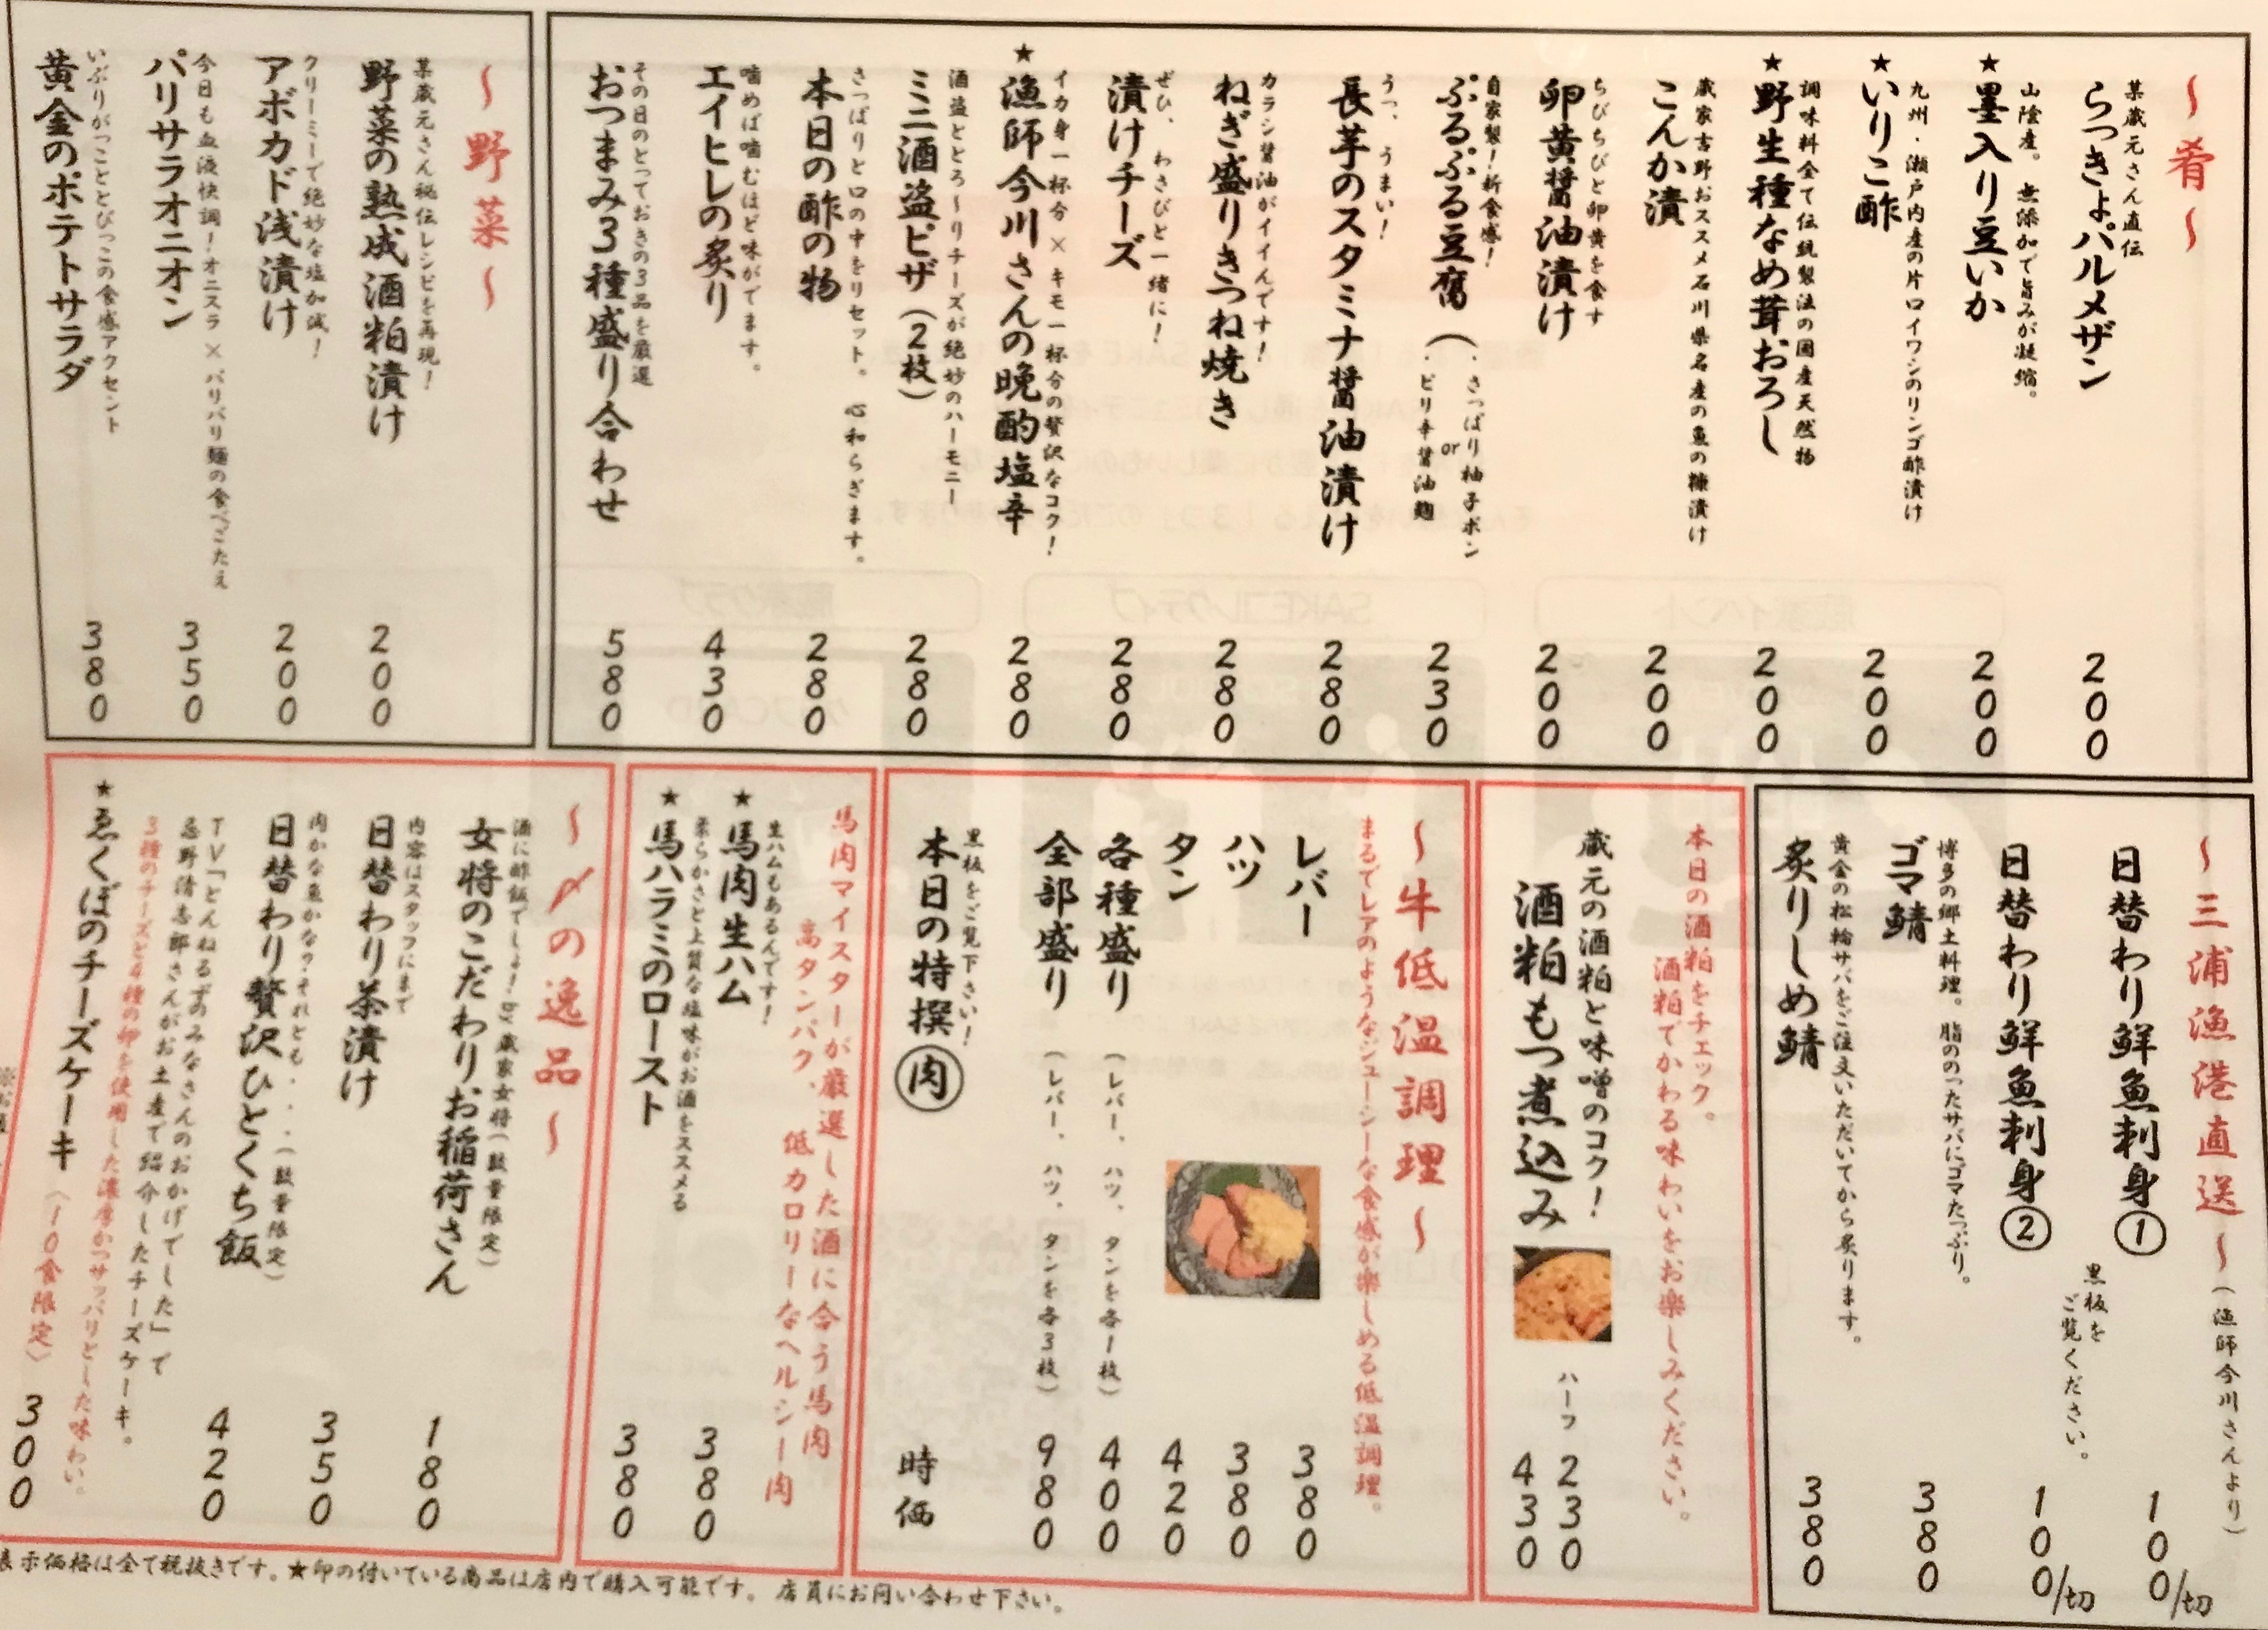 ～肴～
某蔵元さん直伝
らっきょパルメザン 200
山陰産。無添加で旨みが凝縮。
★墨入り豆いか 200
九州・瀬戸内産の片口イワシのリンゴ酢漬け
★いりこ酢 200
調味料全て伝統製法の国産天然物
★野生種なめ茸おろし 200
蔵家吉野おススメ石川県名産の魚の糠漬け
こんか漬 200
ちびちびと卵黄を食す
卵黄醤油漬け 200
自家製！新食感！
ぷるぷる豆腐（・さっぱり柚子ポン
or
・ピリ辛醤油麹 230
うっ、うまい！
長芋のスタミナ醤油漬け 280
カラシ醤油がイイんです！
ねぎ盛りきつね焼き 280
ぜひ、わさびと一緒に！
漬けチーズ 280
イカ身一杯分×キモ一杯分の贅沢なコク！
★漁師今川さんの晩酌塩辛 280
酒盗ととろ〜りチーズが絶妙のハーモニー
ミニ酒盗ピザ（2枚） 280
さっぱりと口の中をリセット。心和らぎます。
本日の酢の物 280
噛めば噛むほど味がでます。
エイヒレの炙り 430
その日のとっておきの3品を厳選
おつまみ3種盛り合わせ 580
～野菜～
某蔵元さん秘伝レシピを再現！
野菜の熟成酒粕漬け 200
クリーミーで絶妙な塩加減！
アボカド浅漬け 200
今日も血液快調！オニスラ×パリパリ麺の食べごたえ
パリサラオニオン 350
いぶりがっこととびっこの食感アクセント
黄金のポテトサラダ 380
～三浦漁港直送～（漁師今川さんより）
日替わり鮮魚刺身① 100/切
黒板を
ご覧ください。
日替わり鮮魚刺身② 100/切
博多の郷土料理。脂ののったサバにゴマたっぷり。
ゴマ鯖 380
黄金の松輪サバをご注文いただいてから炙ります。
炙りしめ鯖 380
本日の酒粕をチェック。
酒粕でかわる味わいをお楽しみください。
蔵元の酒粕と味噌のコク！
ハーフ 230
酒粕もつ煮込み 430
～牛低温調理～
まるでレアのようなジューシーな食感が楽しめる低温調理。
レバー 380
ハツ 380
タン 420
各種盛り（レバー、ハツ、タンを各1枚） 400
全部盛り（レバー、ハツ、タンを各3枚） 980
黒板をご覧下さい！
本日の特撰肉 時価
馬肉マイスターが厳選した酒に合う馬肉
高タンパク、低カロリーなヘルシー肉
生ハムもあるんです！
★馬肉生ハム 380
柔らかさと上質な塩味がお酒をススメる
★馬ハラミのロースト 380
～〆の逸品～
酒に酢飯でしょ！by蔵家女将（数量限定）
女将のこだわりお稲荷さん 180
内容はスタッフにまで
日替わり茶漬け 350
肉かな魚かな？それとも・・・（数量限定）
日替わり贅沢ひとくち飯 420
TV「とんねるずのみなさんのおかげでした」で
忌野清志郎さんがお土産で紹介したチーズケーキ。
3種のチーズと4種の卵を使用した濃厚かつサッパリとした味わい。
★ゑくぼのチーズケーキ〈10食限定〉 300
表示価格は全て税抜きです。★印の付いている商品は店内で購入可能です。店員にお問い合わせ下さい。